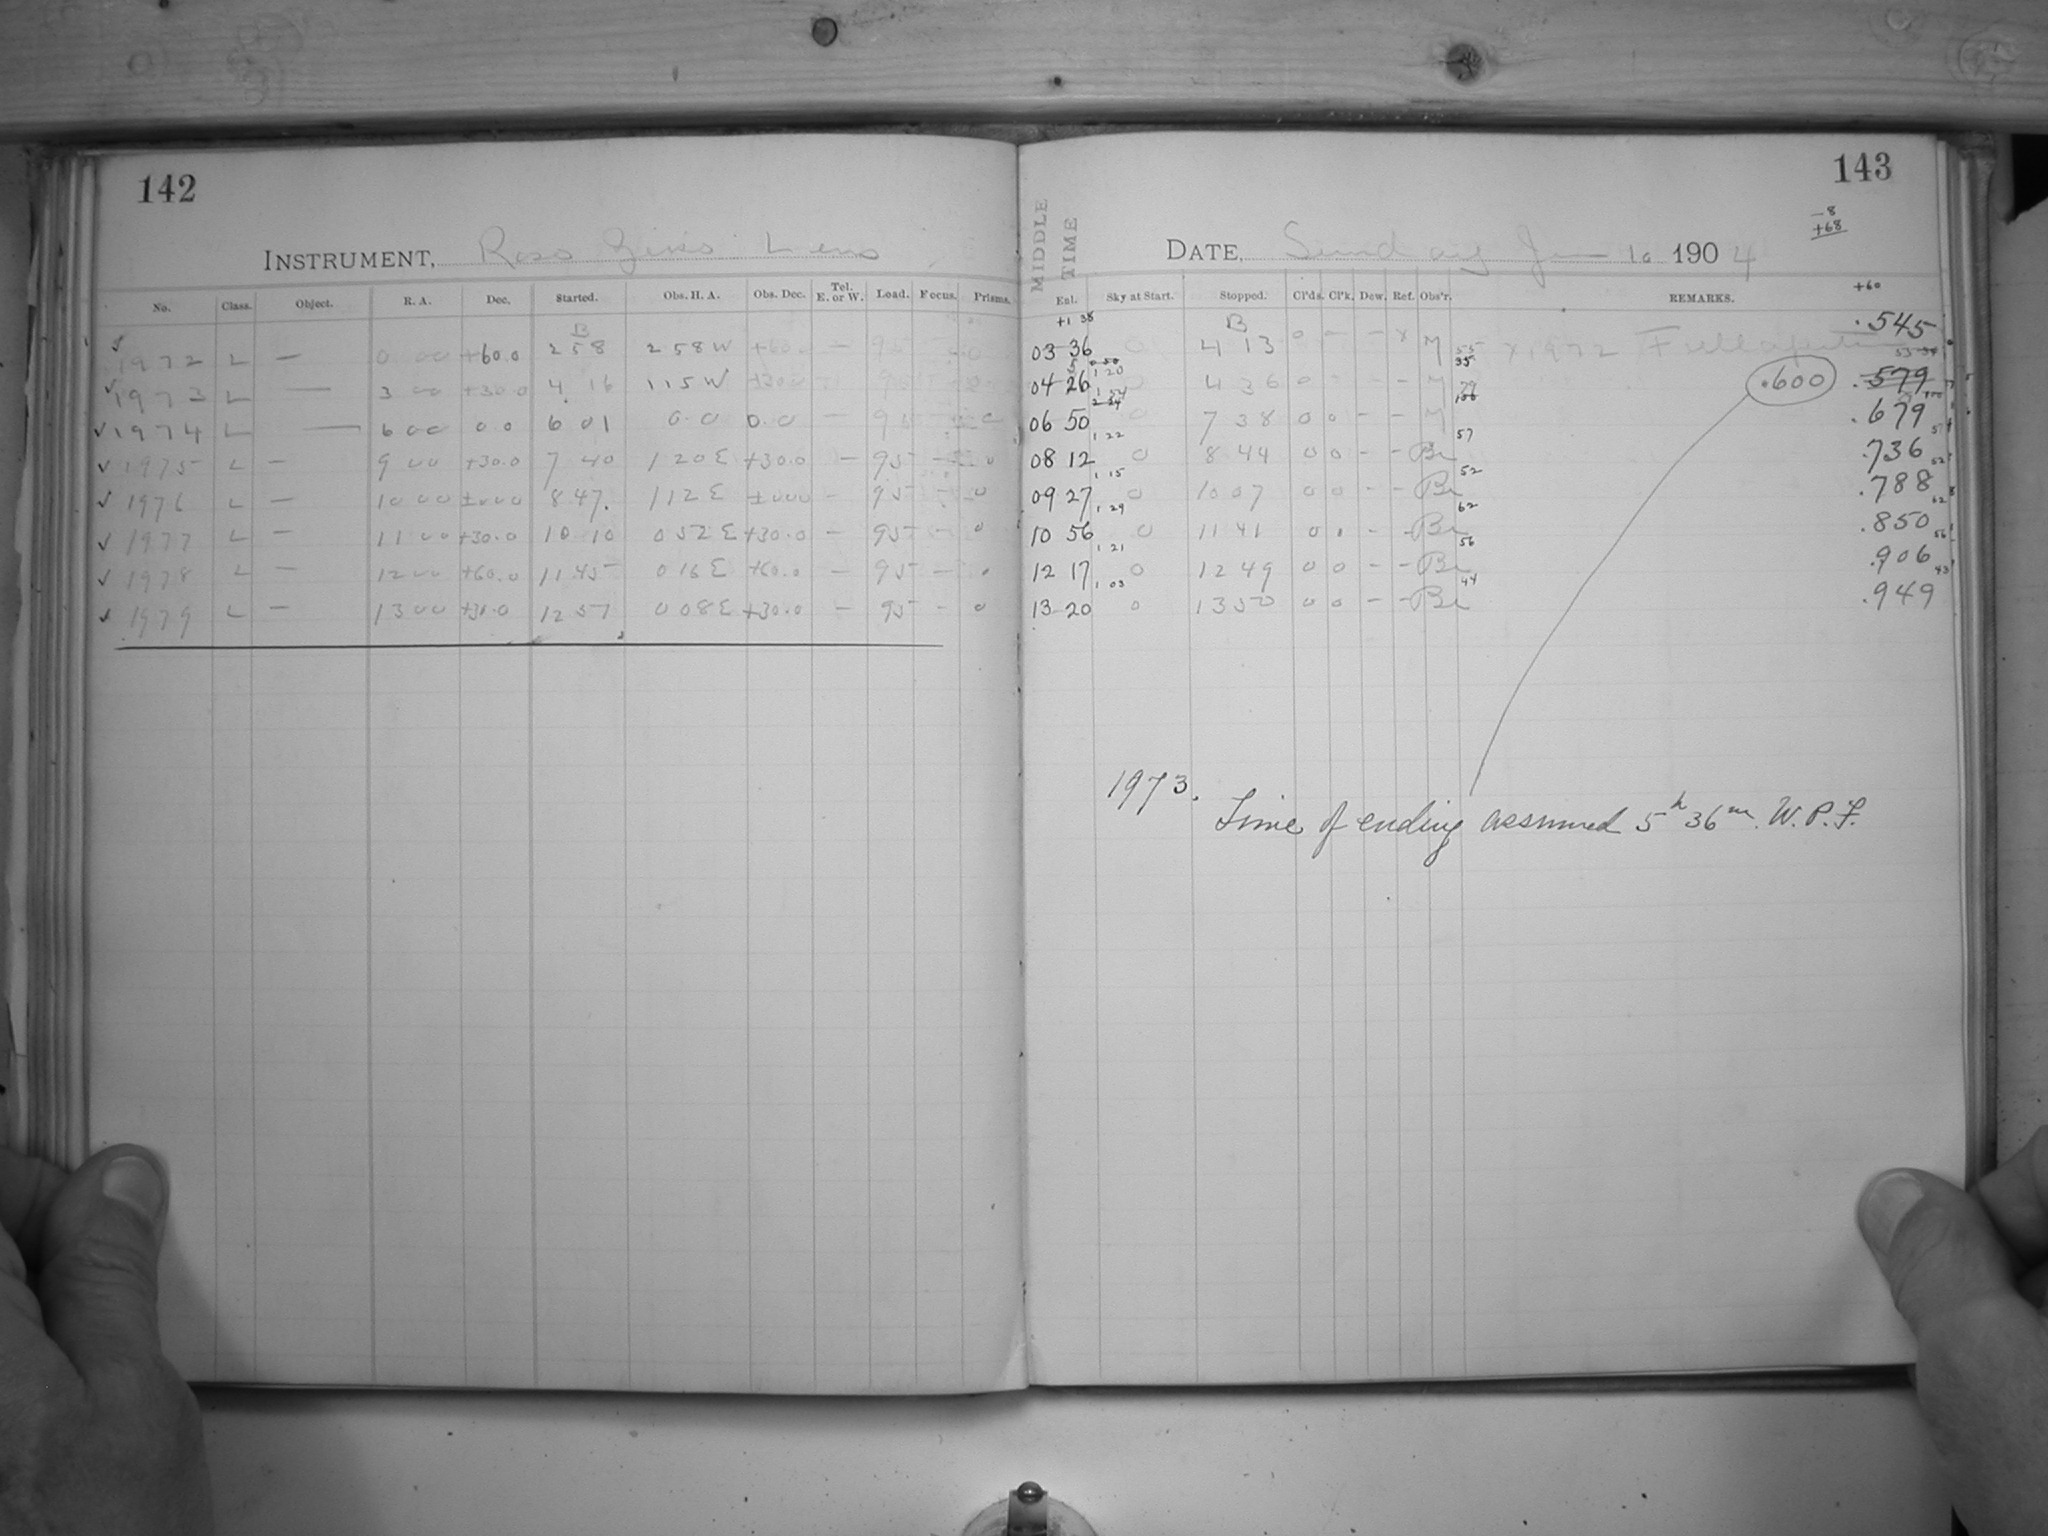 142
INSTRUMENT, Ross Zeiss Lens
No. Class. Object. R. A. Dec. Started. Obs. H. A. Obs. Dec. Tel. E. or W. Load. Focus. Prisms.
B
1972 L — 0 00 +60.0 2 58 2 58 W +60.0 — 95
✓ 1973 L — 3 00 +30.0 4 16 1 15 W +30.0 95
✓ 1974 L — 6 00 0.0 6 01 0.0 0.0 — 95
✓ 1975 L — 9 00 +30.0 7 40 1 20 E +30.0 — 95 — 0
✓ 1976 L — 10 00 ±000 8 47. 1 12 E ±000 — 95 — 0
✓ 1977 L — 11 00 +30.0 10 10 0 52 E +30.0 — 95 — 0
✓ 1978 L — 12 00 +60.0 11 45 0 16 E +60.0 — 95 — 0
✓ 1979 L — 13 00 +30.0 12 57 0 08 E +30.0 — 95 — 0
143
-8
+68
MIDDLE
TIME
DATE, Sunday 10 1904
Enl. Sky at Start. Stopped. Cl'ds. Cl'k. Dew. Ref. Obs'r. REMARKS. +60
+1 38 B
03 36 0 4 13 0 — — x M x 1972 Full aperture .545
04 26 4 36 0 — — — M .600 .579
06 50 7 38 0 0 — — M .679
1 22 57
08 12 0 8 44 0 0 — — Be .736
1 15 52
09 27 0 10 07 0 0 — — Be .788
1 29 62
10 56 0 11 41 0 — Be .850
1 21 56
12 17 0 12 49 0 0 — — Be .906
1 03 44
13 20 0 13 50 0 0 — — Be .949
1973.
Time of ending assumed 5h 36m. W. P. F.